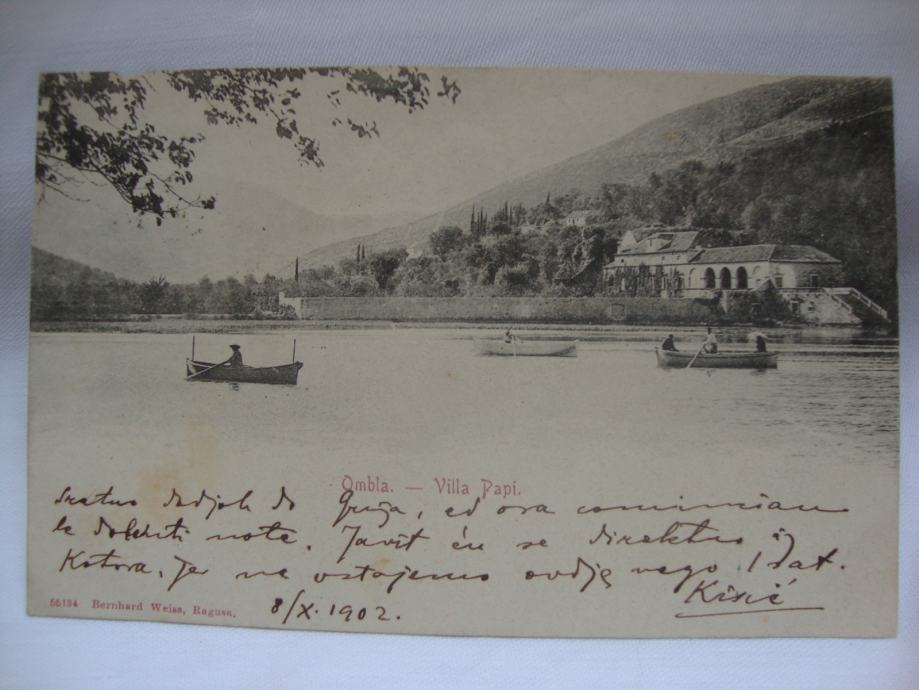 Ombla. — Villa Papi.
Sretno dodjoh do Gruža, ed ora cominciano
le dolenti note. Javit ću se direktno iz
Kotora, jer ne ostajemo ovdje nego 1 sat.
Kisić
55184 Bernhard Weiss, Ragusa.
8/X. 1902.